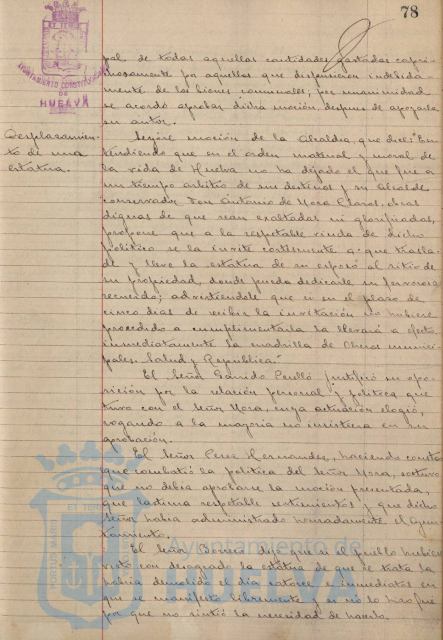 78
AYUNTAMIENTO CONSTITUCIONAL
DE
HUELVA
pal, de todas aquellas cantidades gastadas capri-
chosamente por aquellos que dispusieron indebida-
mente de los bienes comunales; por unanimidad
se acordó aprobar dicha moción, despues de apoyarla
su autor.
Desplazamien-
to de una
estatua.
Leyóse moción de la Alcaldia, que dice: "En-
tendiendo que en el orden material y moral de
la vida de Huelva no ha dejado el que fue a
un tiempo arbitro de sus destinos y su Alcalde
conservador Don Antonio de Mora Claros, obras
dignas de que sean exaltadas ni glorificadas,
propone que a la respetable viuda de dicho
político se la invite cortesmente a que trasla-
de y lleve la estatua de su esposo al sitio de
su propiedad, donde pueda dedicarle su fervoroso
recuerdo; advirtiendole que si en el plazo de
cinco dias de recibir la invitación no hubiere
procedido a cumplimentarla la llevará a efecto
inmediatamente la cuadrilla de Obras munici-
pales. Salud y Republica."
El Señor Garrido Perelló justificó su opo-
sición por la relación personal y politica que
tuvo con el Señor Mora, cuya actuación elogió,
rogando a la mayoria no insistiera en su
aprobación.
El Señor Cruz Hernandez, haciendo constar
que combatió la politica del Señor Mora, sostuvo
que no debia aprobarse la moción presentada,
que lastima respetable sentimientos y que dicho
Señor habia administrado honradamente el Ayun-
tamiento.
El Señor Borrero dijo que si el pueblo hubiera
visto con desagrado la estatua de que se trata la
habia demolido el dia catorce e inmediatos en
que se manifestó libremente y si no lo hizo fué
por que no sintió la necesidad de hacerlo.
PORTUS MARIS
ET TERRE
Ayuntamiento de
HUELVA